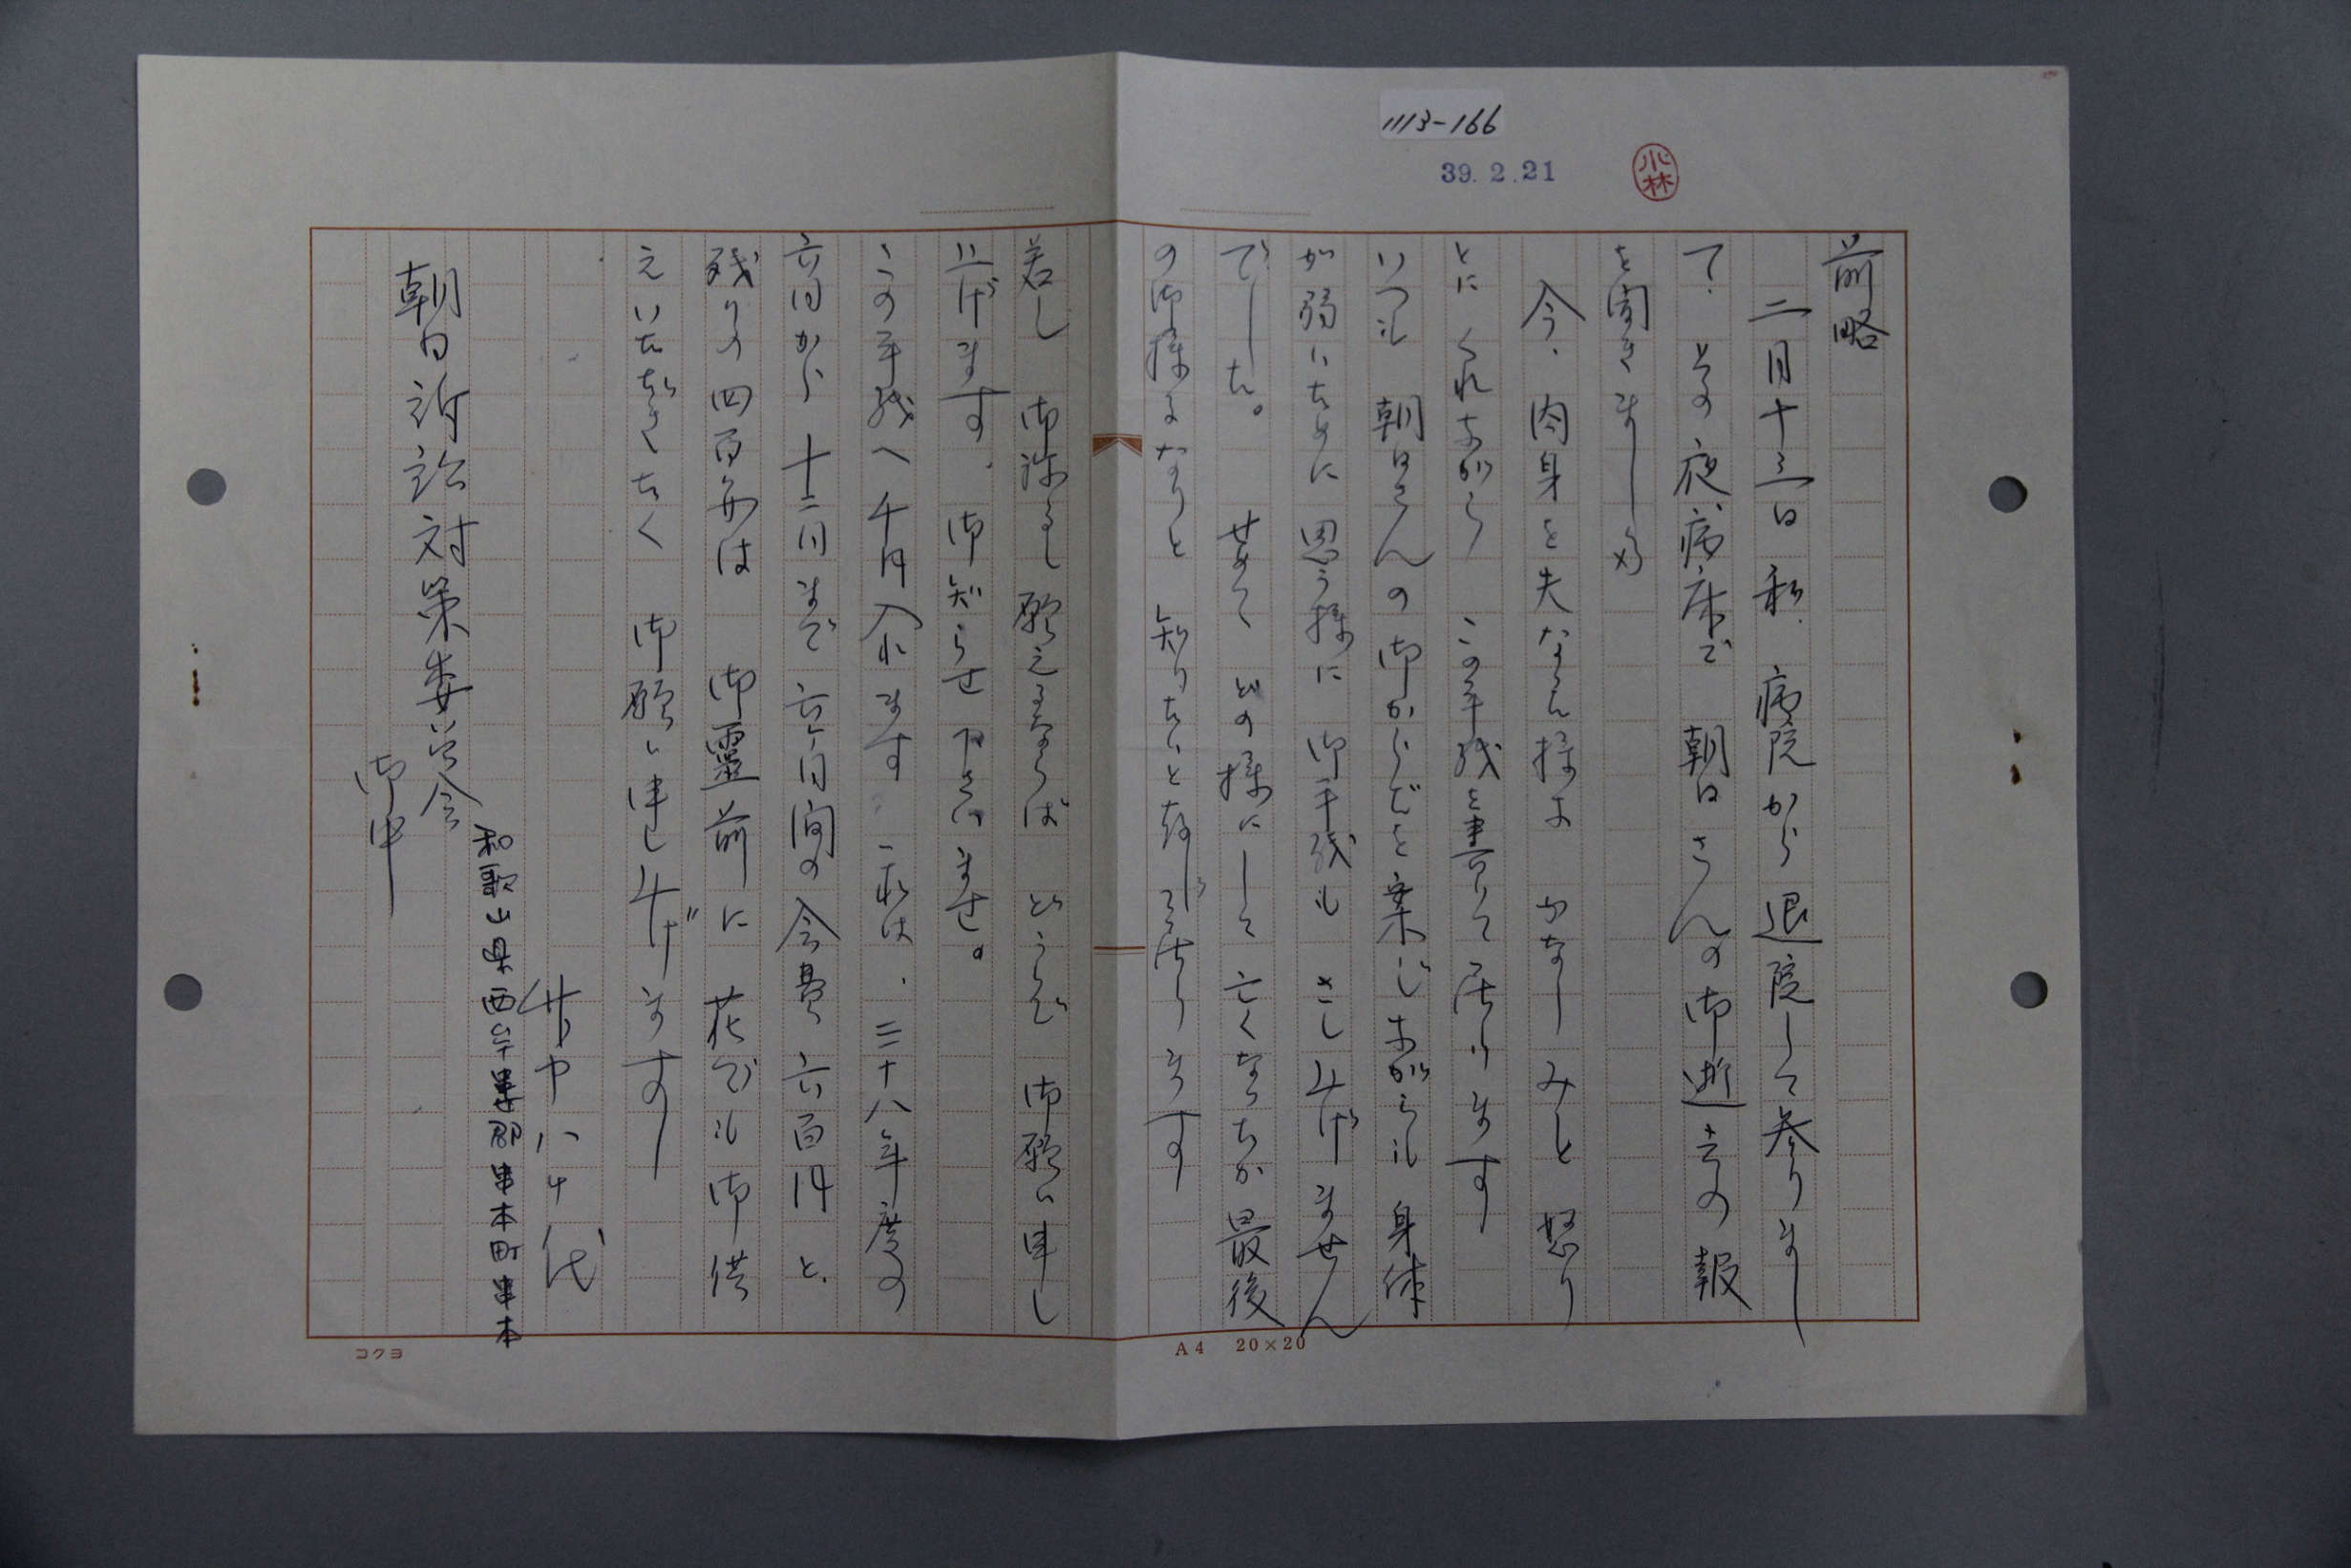 1113-166
39.2.21
小林
前略
二月十三日 私、病院から退院して参りまし
て、その夜、病床で 朝日さんの御逝去の報
を聞きまし
今、肉身を失なった様な かなしみと 怒り
とに くれながら この手紙を書いて居ります
いつも 朝日さんの御からだを案じながらも 身体
が弱いために 思う様に 御手紙も さし上げません
でした。 せめて どの様にして 亡くなったか 最後
の御様子なりと 知りたいと存じて居ります
若し 御許し願えるならば どうぞ 御願い申し
上げます。御知らせ下さいませ。
この手紙へ 千円入れます これは、三十八年度の
六月から 十二月まで 六ヶ月間の会費 六百円と、
残りの四百円は 御霊前に 花でも御供
えいただきたく 御願い申し上げます
代
和歌山県西牟婁郡串本町串本
朝日訴訟対策委員会
御中
コクヨ
A4 20×20